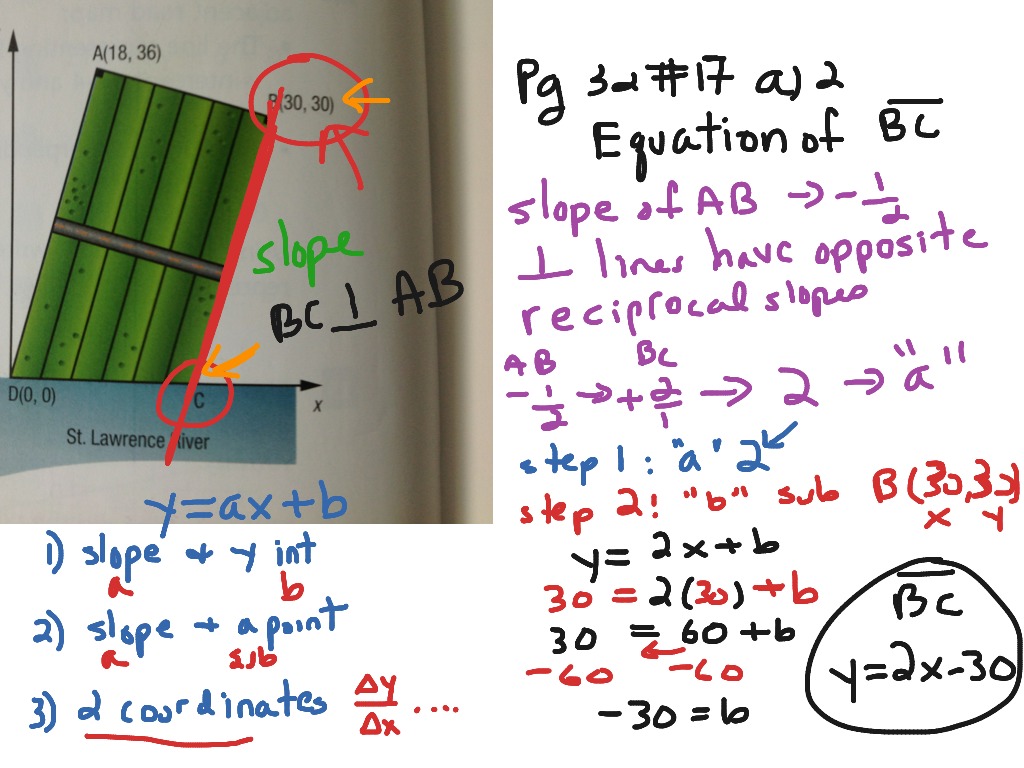 A(18, 36)
B(30, 30)
D(0, 0)
C
x
St. Lawrence River
slope
BC ⊥ AB
y=ax+b
1) slope + y int
a b
2) slope + a point
a sub
3) 2 coordinates Δy/Δx ....
Pg 32 #17 a) 2
Equation of BC
slope of AB → -1/2
⊥ lines have opposite
reciprocal slopes
AB BC
-1/2 → +2/1 → 2 → "a"
step 1: "a" 2
step 2! "b" sub B(30,30)
x y
y= 2x+b
30 = 2(30)+b
30 = 60+b
-60 ← -60
-30 = b
BC
y=2x-30